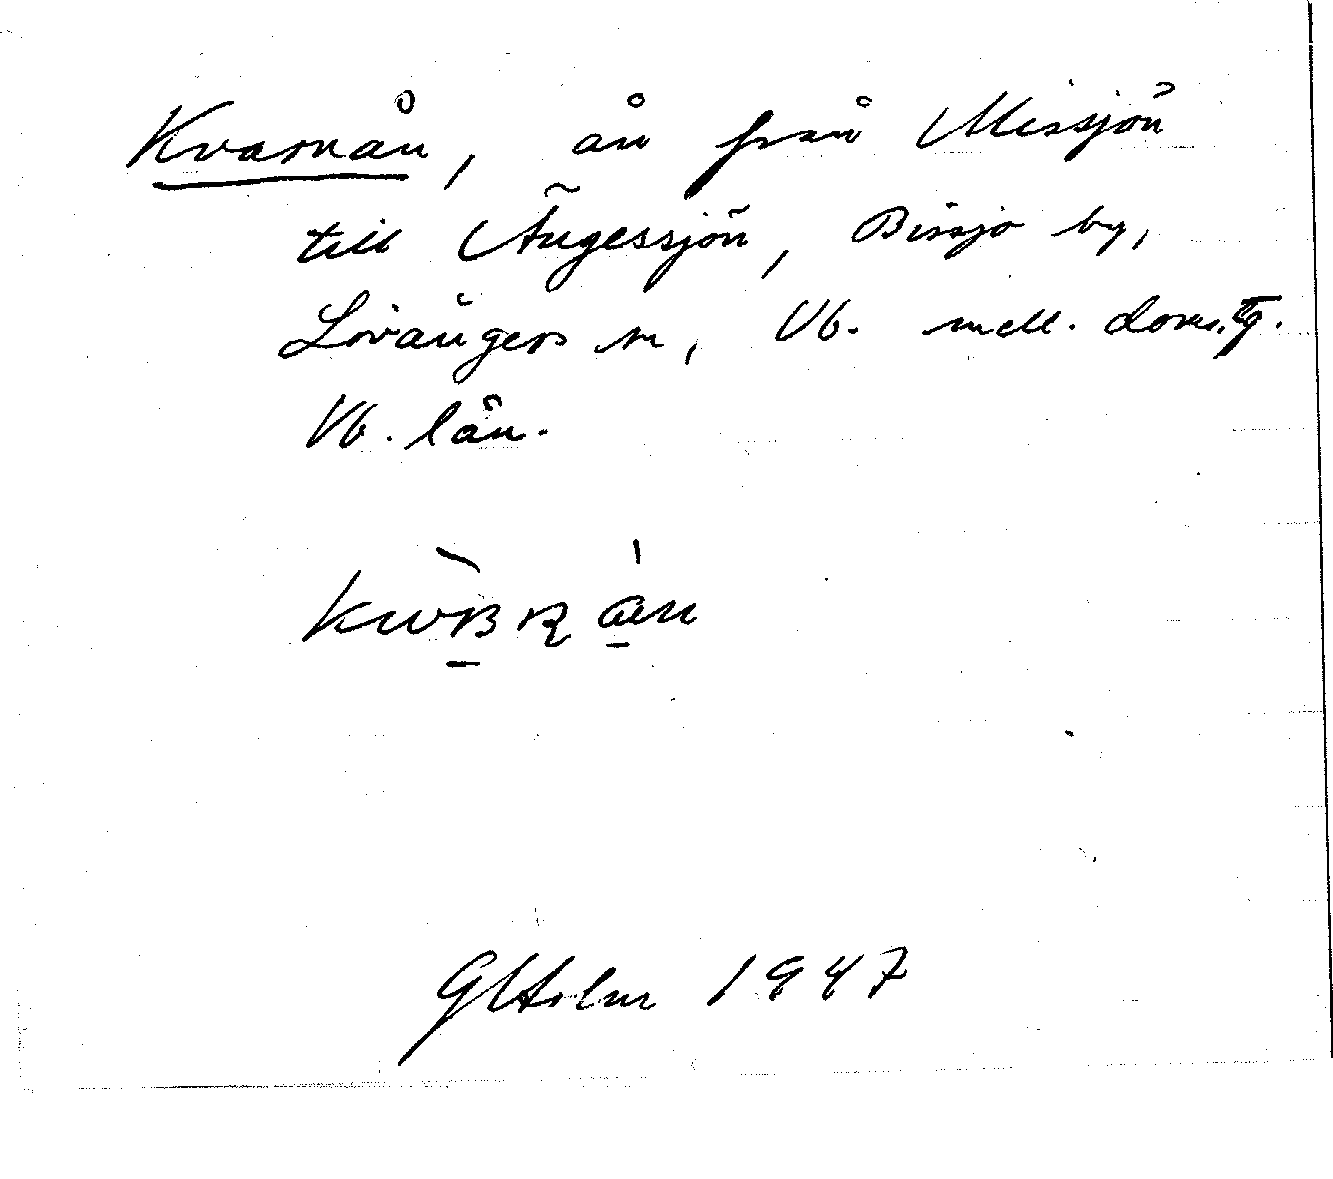 Kvarnån, ån från Missjön
till Ångessjön, Bissjö by,
Lövångers sn, Vb. mell. doms.tg.
Vb. län.
GHolm 1947